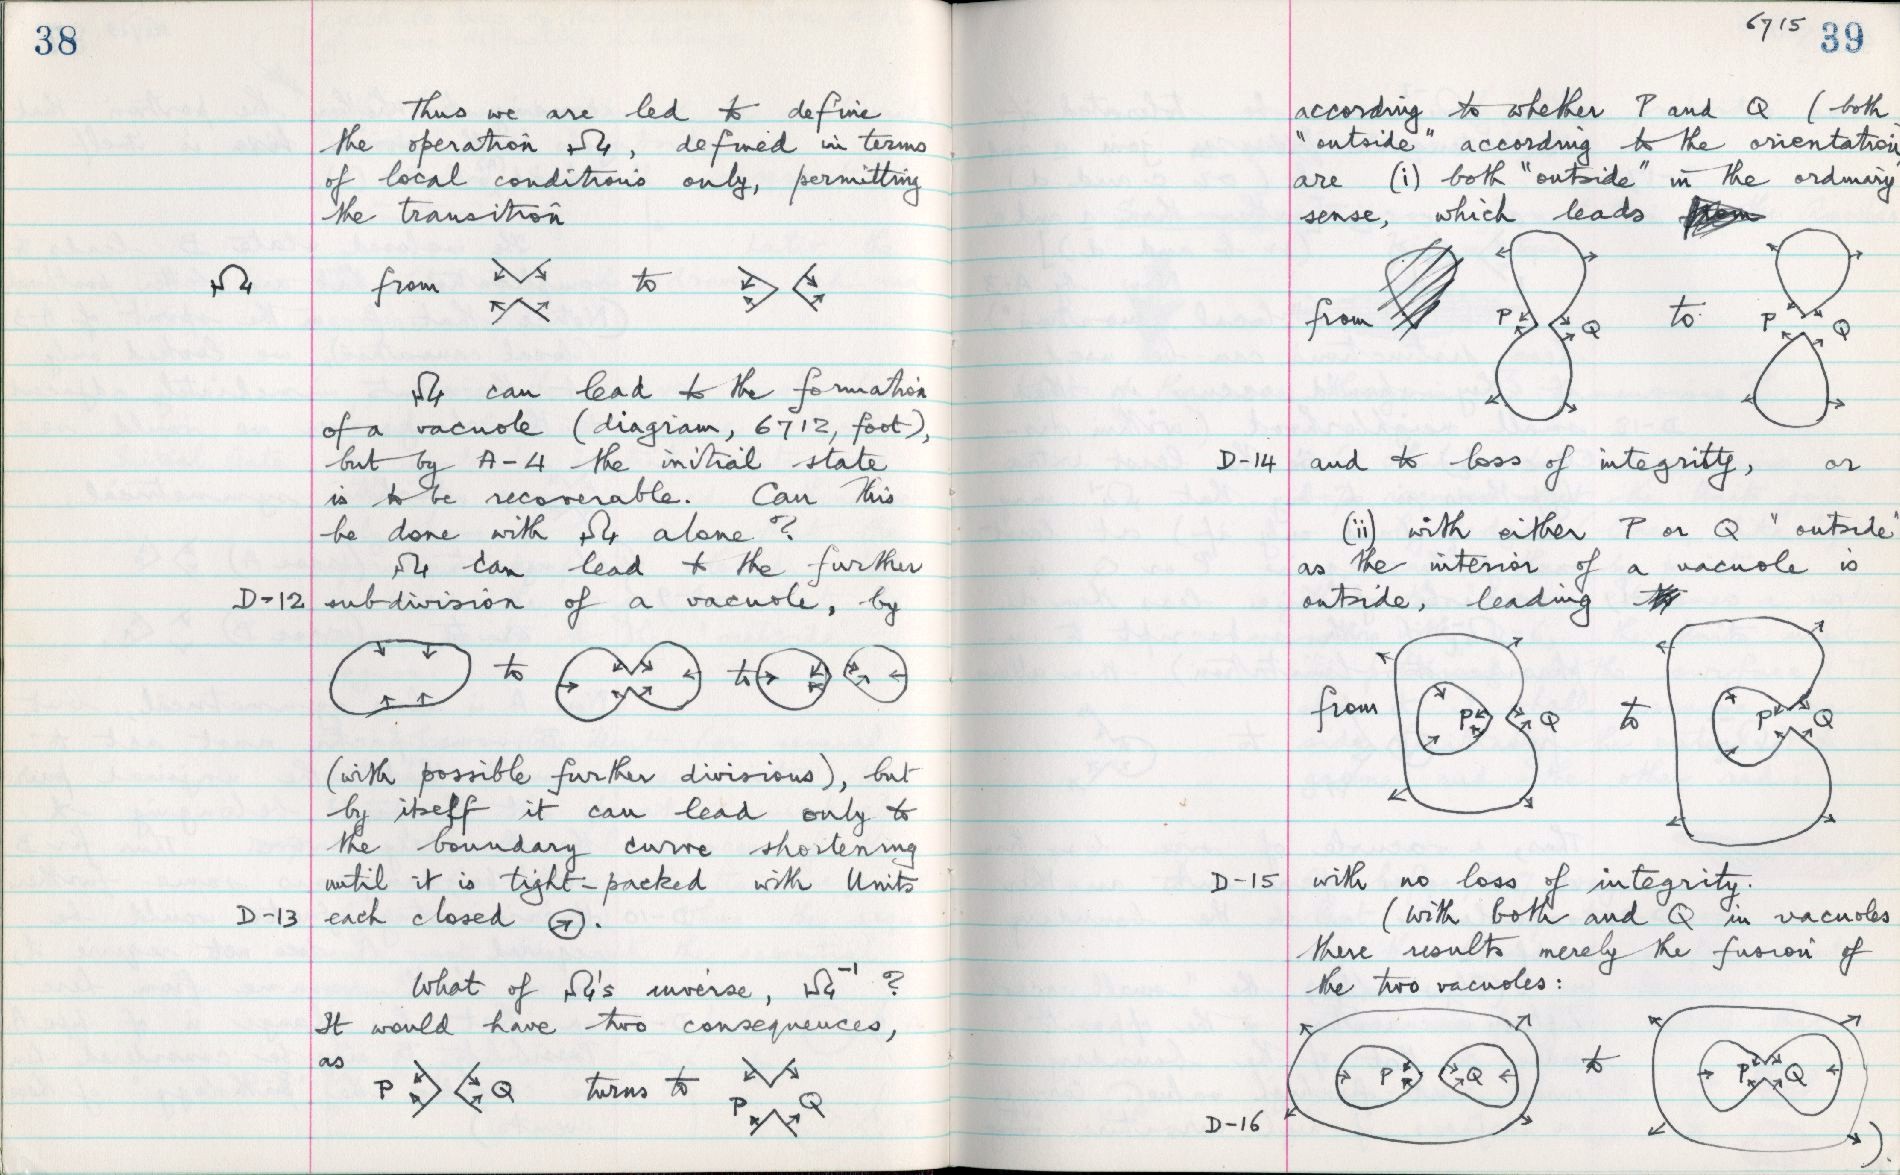 38
Thus we are led to define
the operation Ω4, defined in terms
of local conditions only, permitting
the transition
Ω4 from to
Ω4 can lead to the formation
of a vacuole (diagram, 6712, foot),
but by A-4 the initial state
is to be recoverable. Can this
be done with Ω4 alone?
Ω4 can lead to the further
D-12 subdivision of a vacuole, by
to to
(with possible further divisions), but
by itself it can lead only to
the boundary curve shortening
until it is tight-packed with Units
D-13 each closed .
What of Ω4's inverse, Ω4⁻¹ ?
It would have two consequences,
as
P Q turns to P Q
6715 39
according to whether P and Q (both
"outside" according to the orientation)
are (i) both "outside" in the ordinary
sense, which leads
from P Q to P Q
D-14 and to loss of integrity, or
(ii) with either P or Q "outside"
as the interior of a vacuole is
outside, leading
from P Q to P Q
D-15 with no loss of integrity.
(with both and Q in vacuoles
there results merely the fusion of
the two vacuoles:
P Q to P Q
D-16 ).